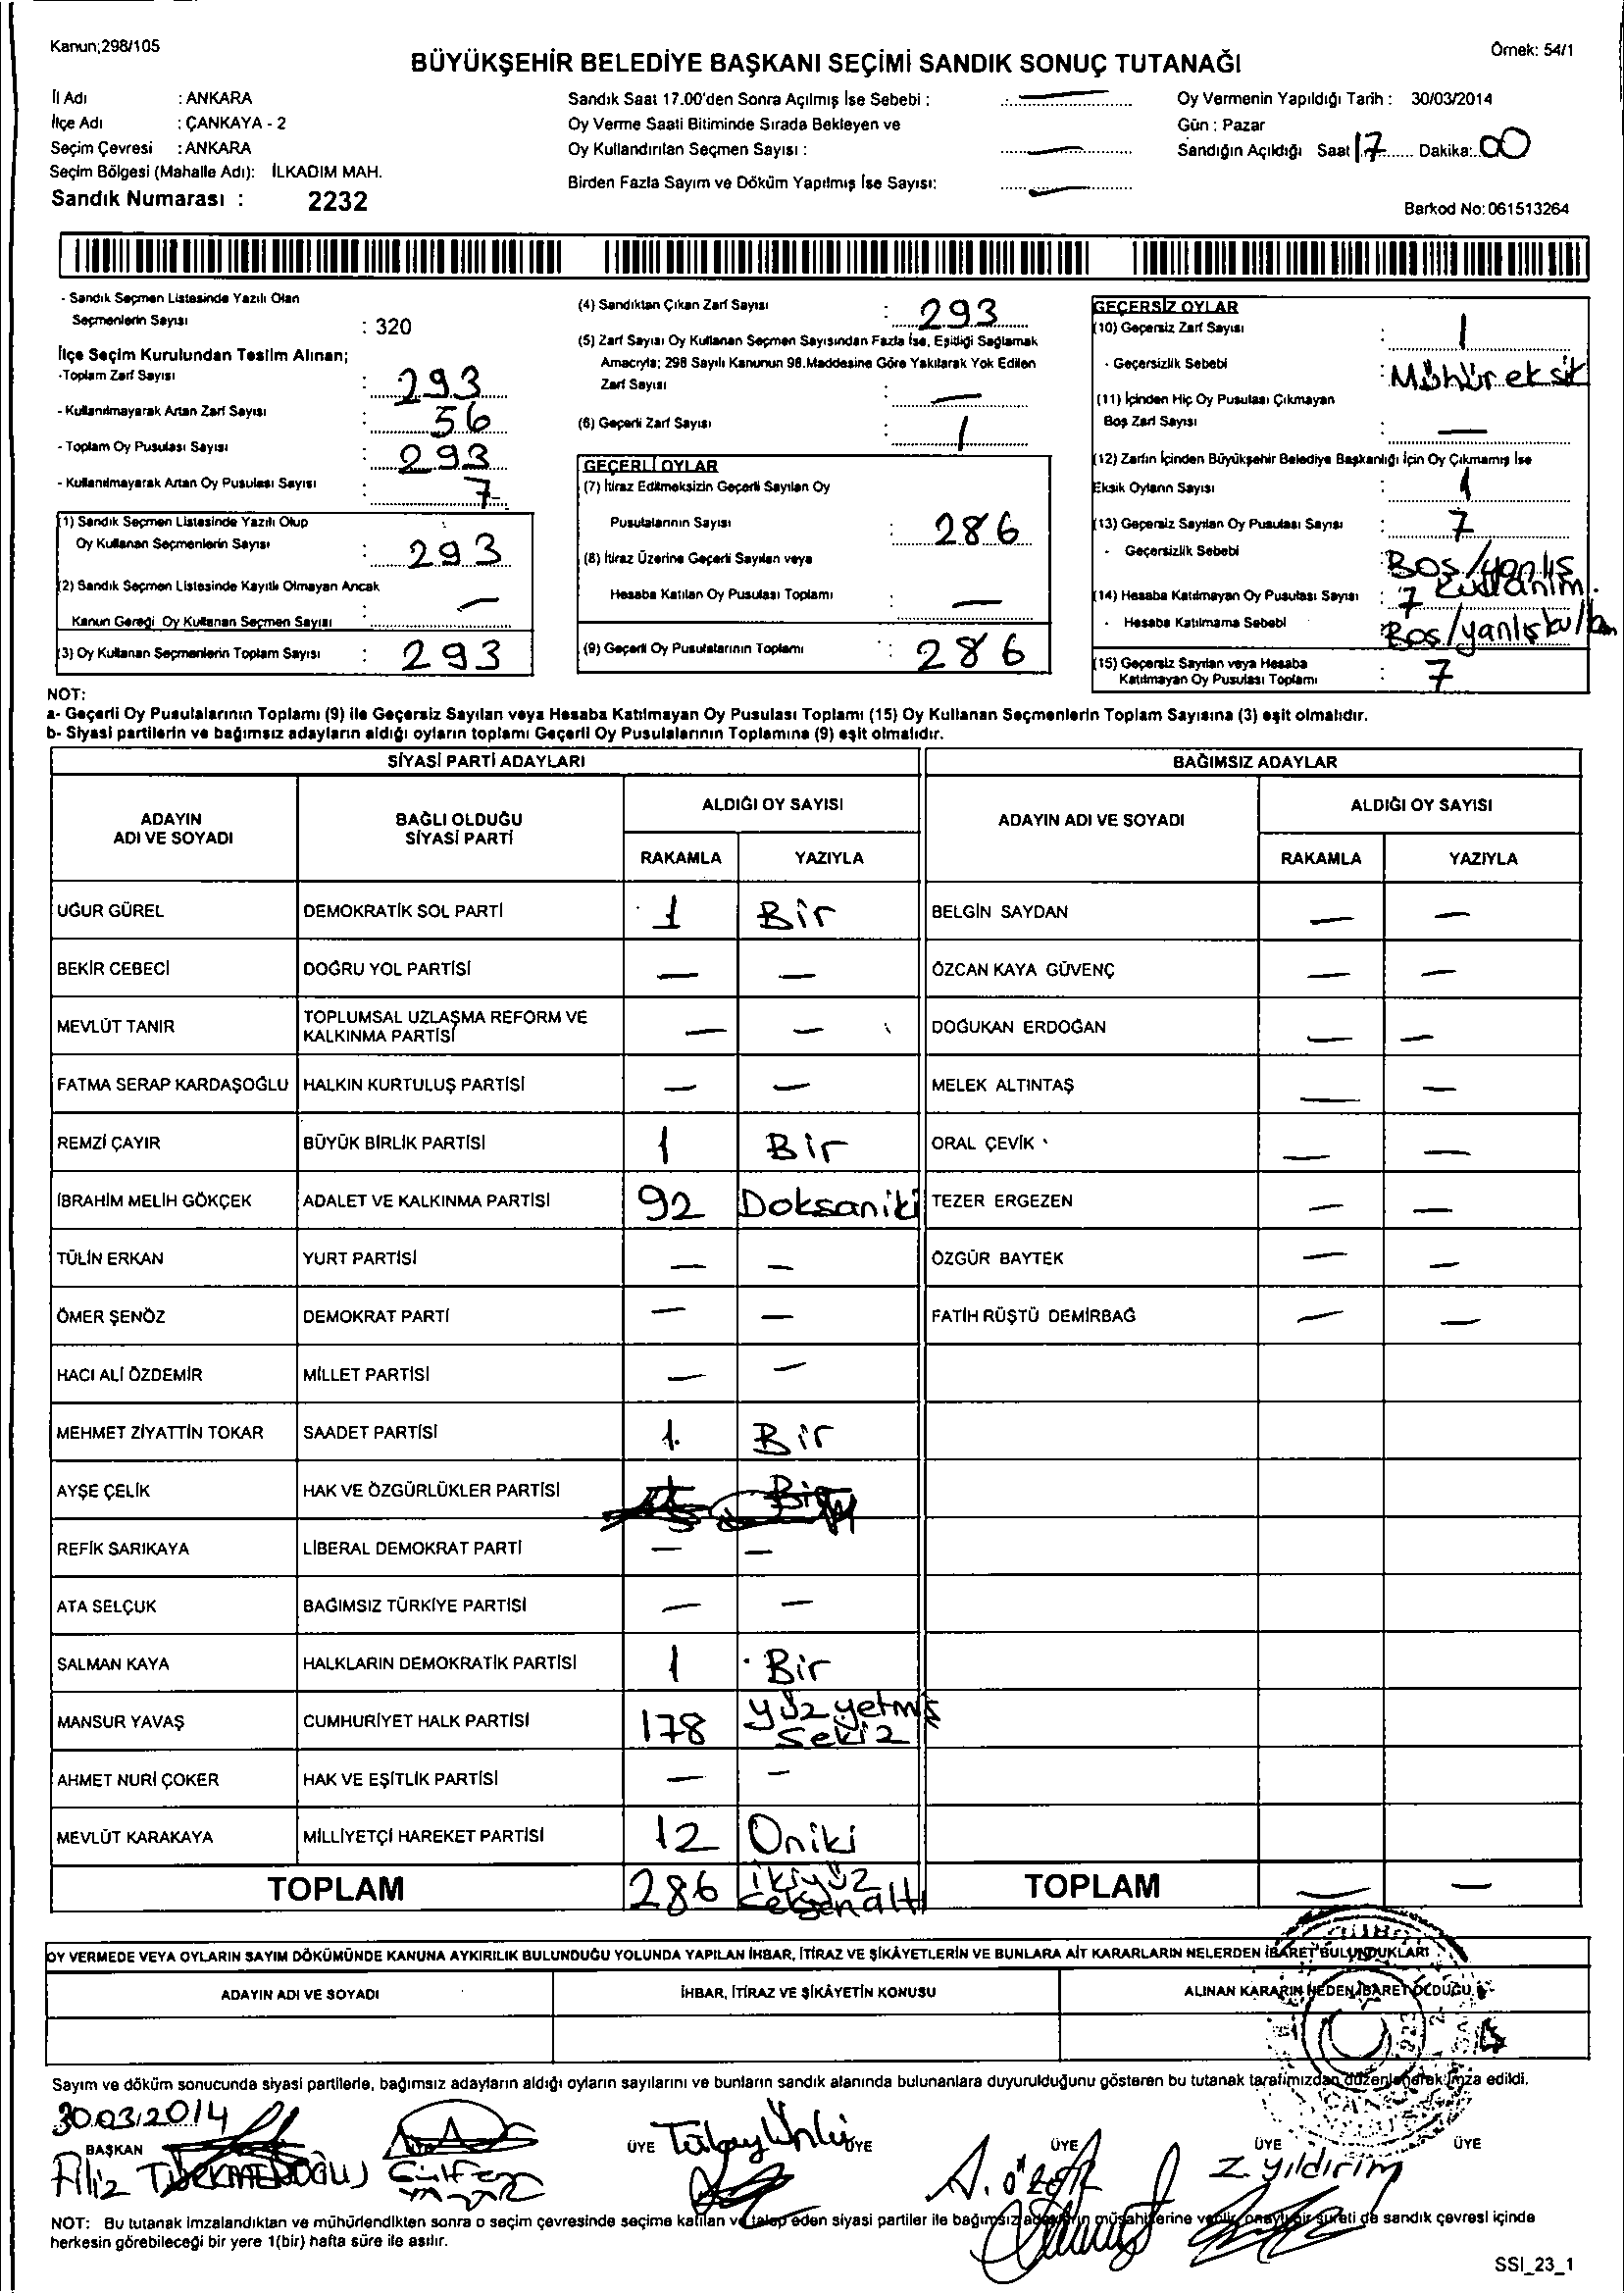 Kanun;298/105
Örnek: 54/1
BÜYÜKŞEHİR BELEDİYE BAŞKANI SEÇİMİ SANDIK SONUÇ TUTANAĞI
İl Adı : ANKARA
İlçe Adı : ÇANKAYA - 2
Seçim Çevresi : ANKARA
Seçim Bölgesi (Mahalle Adı): İLKADIM MAH.
Sandık Numarası : 2232
Sandık Saat 17.00'den Sonra Açılmış İse Sebebi : —
Oy Verme Saati Bitiminde Sırada Bekleyen ve
Oy Kullandırılan Seçmen Sayısı : —
Birden Fazla Sayım ve Döküm Yapılmış İse Sayısı: —
Oy Vermenin Yapıldığı Tarih : 30/03/2014
Gün : Pazar
Sandığın Açıldığı Saat 17 Dakika: 00
Barkod No: 061513264
- Sandık Seçmen Listesinde Yazılı Olan
Seçmenlerin Sayısı : 320
İlçe Seçim Kurulundan Teslim Alınan;
-Toplam Zarf Sayısı : 293
- Kullanılmayarak Artan Zarf Sayısı : 56
- Toplam Oy Pusulası Sayısı : 293
- Kullanılmayarak Artan Oy Pusulası Sayısı : 7
(1) Sandık Seçmen Listesinde Yazılı Olup
Oy Kullanan Seçmenlerin Sayısı : 293
(2) Sandık Seçmen Listesinde Kayıtlı Olmayan Ancak
Kanun Gereği Oy Kullanan Seçmen Sayısı : —
(3) Oy Kullanan Seçmenlerin Toplam Sayısı : 293
(4) Sandıktan Çıkan Zarf Sayısı : 293
(5) Zarf Sayısı Oy Kullanan Seçmen Sayısından Fazla İse, Eşitliği Sağlamak
Amacıyla; 298 Sayılı Kanunun 98.Maddesine Göre Yakılarak Yok Edilen
Zarf Sayısı : —
(6) Geçerli Zarf Sayısı : 1
GEÇERLİ OYLAR
(7) İtiraz Edilmeksizin Geçerli Sayılan Oy
Pusulalarının Sayısı : 286
(8) İtiraz Üzerine Geçerli Sayılan veya
Hesaba Katılan Oy Pusulası Toplamı : —
(9) Geçerli Oy Pusulalarının Toplamı : 286
GEÇERSİZ OYLAR
(10) Geçersiz Zarf Sayısı : 1
- Geçersizlik Sebebi : Mühür eksik
(11) İçinden Hiç Oy Pusulası Çıkmayan
Boş Zarf Sayısı : —
(12) Zarfın İçinden Büyükşehir Belediye Başkanlığı İçin Oy Çıkmamış İse
Eksik Oyların Sayısı : 1
(13) Geçersiz Sayılan Oy Pusulası Sayısı : 7
- Geçersizlik Sebebi : Boş/yanlış kullanım.
(14) Hesaba Katılmayan Oy Pusulası Sayısı : 7
- Hesaba Katılmama Sebebi : Boş/yanlış
(15) Geçersiz Sayılan veya Hesaba
Katılmayan Oy Pusulası Toplamı : 7
NOT:
a- Geçerli Oy Pusulalarının Toplamı (9) ile Geçersiz Sayılan veya Hesaba Katılmayan Oy Pusulası Toplamı (15) Oy Kullanan Seçmenlerin Toplam Sayısına (3) eşit olmalıdır.
b- Siyasi partilerin ve bağımsız adayların aldığı oyların toplamı Geçerli Oy Pusulalarının Toplamına (9) eşit olmalıdır.
SİYASİ PARTİ ADAYLARI BAĞIMSIZ ADAYLAR
ADAYIN ADI VE SOYADI
BAĞLI OLDUĞU SİYASİ PARTİ
ALDIĞI OY SAYISI
RAKAMLA YAZIYLA
ADAYIN ADI VE SOYADI
ALDIĞI OY SAYISI
RAKAMLA YAZIYLA
UĞUR GÜREL DEMOKRATİK SOL PARTİ 1 Bir BELGİN SAYDAN — —
BEKİR CEBECİ DOĞRU YOL PARTİSİ — — ÖZCAN KAYA GÜVENÇ — —
MEVLÜT TANIR TOPLUMSAL UZLAŞMA REFORM VE KALKINMA PARTİSİ — — DOĞUKAN ERDOĞAN — —
FATMA SERAP KARDAŞOĞLU HALKIN KURTULUŞ PARTİSİ — — MELEK ALTINTAŞ — —
REMZİ ÇAYIR BÜYÜK BİRLİK PARTİSİ 1 Bir ORAL ÇEVİK — —
İBRAHİM MELİH GÖKÇEK ADALET VE KALKINMA PARTİSİ 92 Doksaniki TEZER ERGEZEN — —
TÜLİN ERKAN YURT PARTİSİ — — ÖZGÜR BAYTEK — —
ÖMER ŞENÖZ DEMOKRAT PARTİ — — FATİH RÜŞTÜ DEMİRBAĞ — —
HACI ALİ ÖZDEMİR MİLLET PARTİSİ — —
MEHMET ZİYATTİN TOKAR SAADET PARTİSİ 1. Bir
AYŞE ÇELİK HAK VE ÖZGÜRLÜKLER PARTİSİ
REFİK SARIKAYA LİBERAL DEMOKRAT PARTİ — —
ATA SELÇUK BAĞIMSIZ TÜRKİYE PARTİSİ — —
SALMAN KAYA HALKLARIN DEMOKRATİK PARTİSİ 1 Bir
MANSUR YAVAŞ CUMHURİYET HALK PARTİSİ 178 yüz yetmiş sekiz
AHMET NURİ ÇOKER HAK VE EŞİTLİK PARTİSİ — —
MEVLÜT KARAKAYA MİLLİYETÇİ HAREKET PARTİSİ 12 Oniki
TOPLAM 286 ikiyüz seksenaltı TOPLAM — —
OY VERMEDE VEYA OYLARIN SAYIM DÖKÜMÜNDE KANUNA AYKIRILIK BULUNDUĞU YOLUNDA YAPILAN İHBAR, İTİRAZ VE ŞİKÂYETLERİN VE BUNLARA AİT KARARLARIN NELERDEN İBARET BULUNDUKLARI
ADAYIN ADI VE SOYADI İHBAR, İTİRAZ VE ŞİKÂYETİN KONUSU ALINAN KARARIN NEDEN İBARET OLDUĞU
Sayım ve döküm sonucunda siyasi partilerle, bağımsız adayların aldığı oyların sayılarını ve bunların sandık alanında bulunanlara duyurulduğunu gösteren bu tutanak tarafımızdan düzenlenerek imza edildi.
30.03.2014
BAŞKAN ÜYE ÜYE ÜYE ÜYE ÜYE
Filiz Tülay Ünlü Z yıldırım
NOT: Bu tutanak imzalandıktan ve mühürlendikten sonra o seçim çevresinde seçime katılan ve talep eden siyasi partiler ile bağımsız adayların müşahitlerine verilir, onaylı bir sureti de sandık çevresi içinde
herkesin görebileceği bir yere 1(bir) hafta süre ile asılır.
SSI_23_1